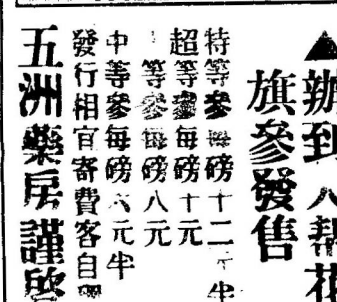 ▲辦到八幇花
旗參發售
特等參每磅十二元半
超等參每磅十元
等參每磅八元
中等參每磅六元半
發行相宜寄費客自
五洲藥房謹啓